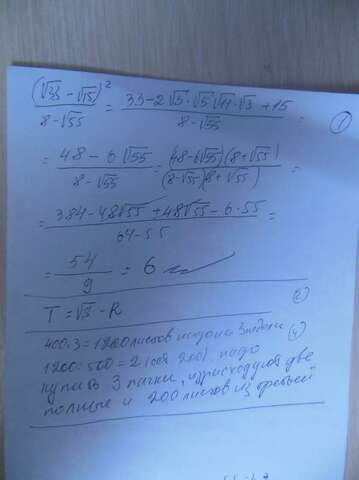 (√33 - √15)² / 8-√55 = 33-2√3·√5·√11·√3 +15 / 8-√55 =
①
= 48 - 6√55 / 8-√55 = (48-6√55)(8+√55) / (8-√55)(8+√55) =
= 384-48√55 +48√55 -6·55 / 64-55 =
= 54 / 9 = 6
②
T = - R
400·3=1200 листов на 3 недели
④
1200:500 = 2 (ост 200). надо
купить 3 пачки, израсходуют две
полные и 200 листов из третьей